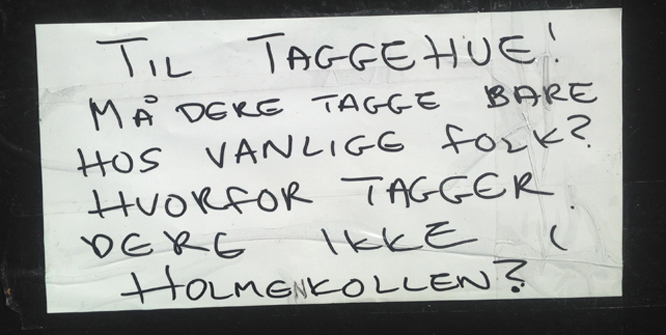 TIL TAGGEHUE!
MÅ DERE TAGGE BARE
HOS VANLIGE FOLK?
HVORFOR TAGGER
DERE IKKE I
HOLMENKOLLEN?